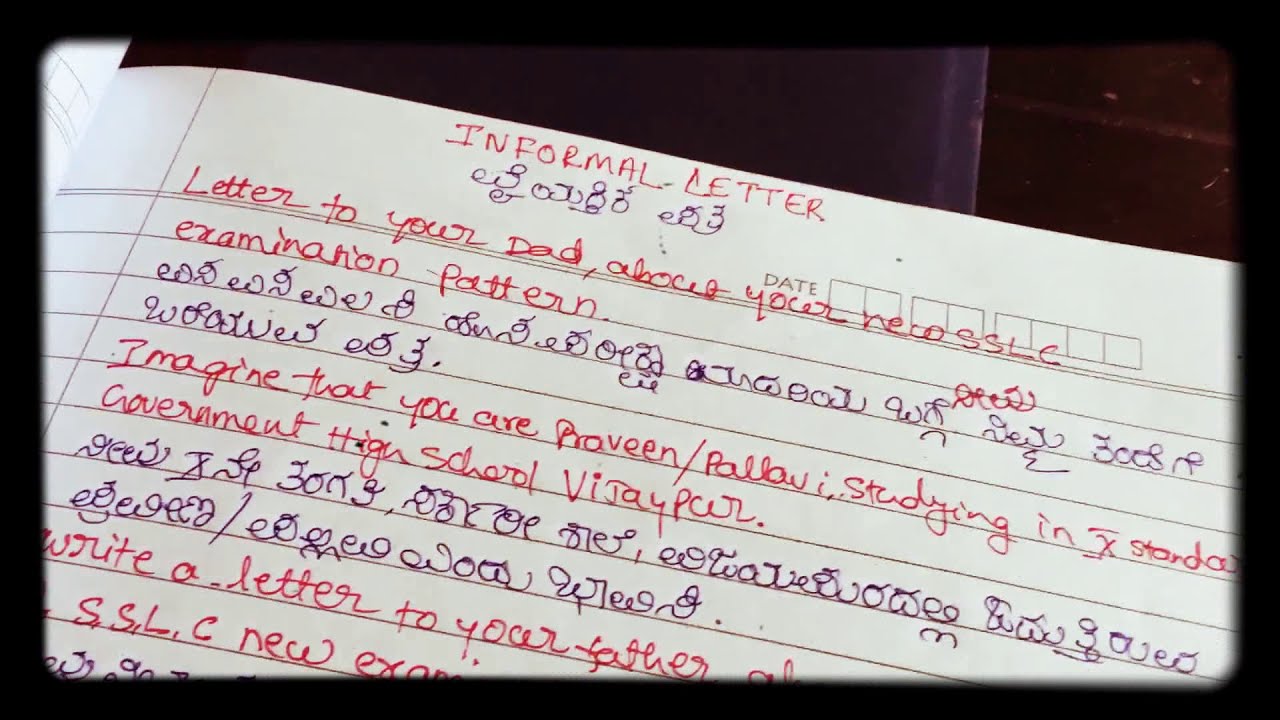 INFORMAL LETTER
ವೈಯಕ್ತಿಕ ಪತ್ರ
DATE
Letter to your Dad, about your new SSLC
examination pattern.
ಹೊಸ ಪರೀಕ್ಷಾ ಮಾದರಿಯ ಬಗ್ಗೆ ನೀವು ನಿಮ್ಮ ತಂದೆಗೆ
ಬರೆಯುವ ಪತ್ರ.
Imagine that you are Praveen/Pallavi, studying in X standard
Government High School Vijaypur.
ನೀವು Xನೇ ತರಗತಿ, ಸರ್ಕಾರೀ ಶಾಲೆ, ವಿಜಯಪುರದಲ್ಲಿ ಓದುತ್ತಿರುವ
ಪ್ರವೀಣ/ಪಲ್ಲವಿ ಎಂದು ಭಾವಿಸಿ.
write a letter to your father
S.S.L.C new